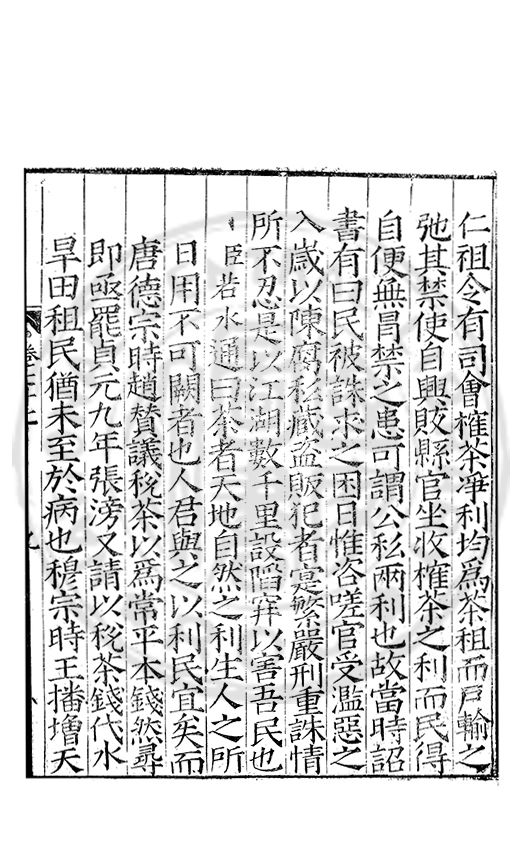 仁祖令有司會榷茶淨利均爲茶租而戸輸之
弛其禁使自興販縣官坐收榷茶之利而民得
自便無冒禁之患可謂公私兩利也故當時詔
書有曰民被誅求之困日惟咨嗟官受濫惡之
入歲以陳腐私藏盜販犯者寔繁嚴刑重誅情
所不忍是以江湖數千里設陷穽以害吾民也
臣若水通曰茶者天地自然之利生人之所
日用不可闕者也人君與之以利民宜矣而
唐德宗時趙贊議稅茶以爲常平本錢然尋
即亟罷貞元九年張滂又請以稅茶錢代水
旱田租民猶未至於病也穆宗時王播增天